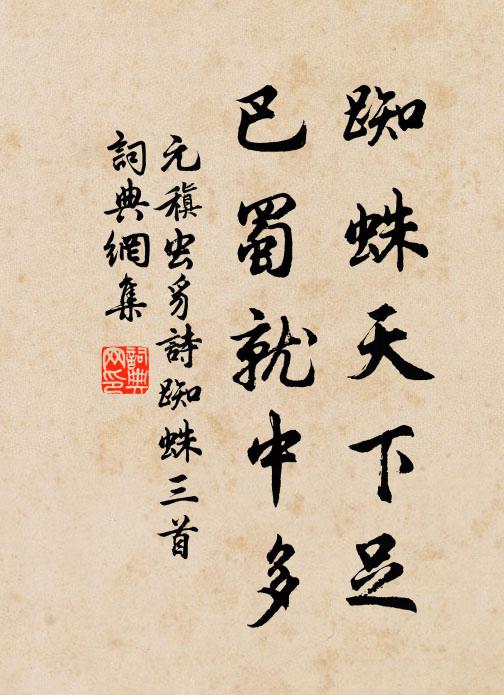 踟蛛天下足
巴蜀就中多
元稹虫豸詩踟蛛三首
詞典網集
詞典網印